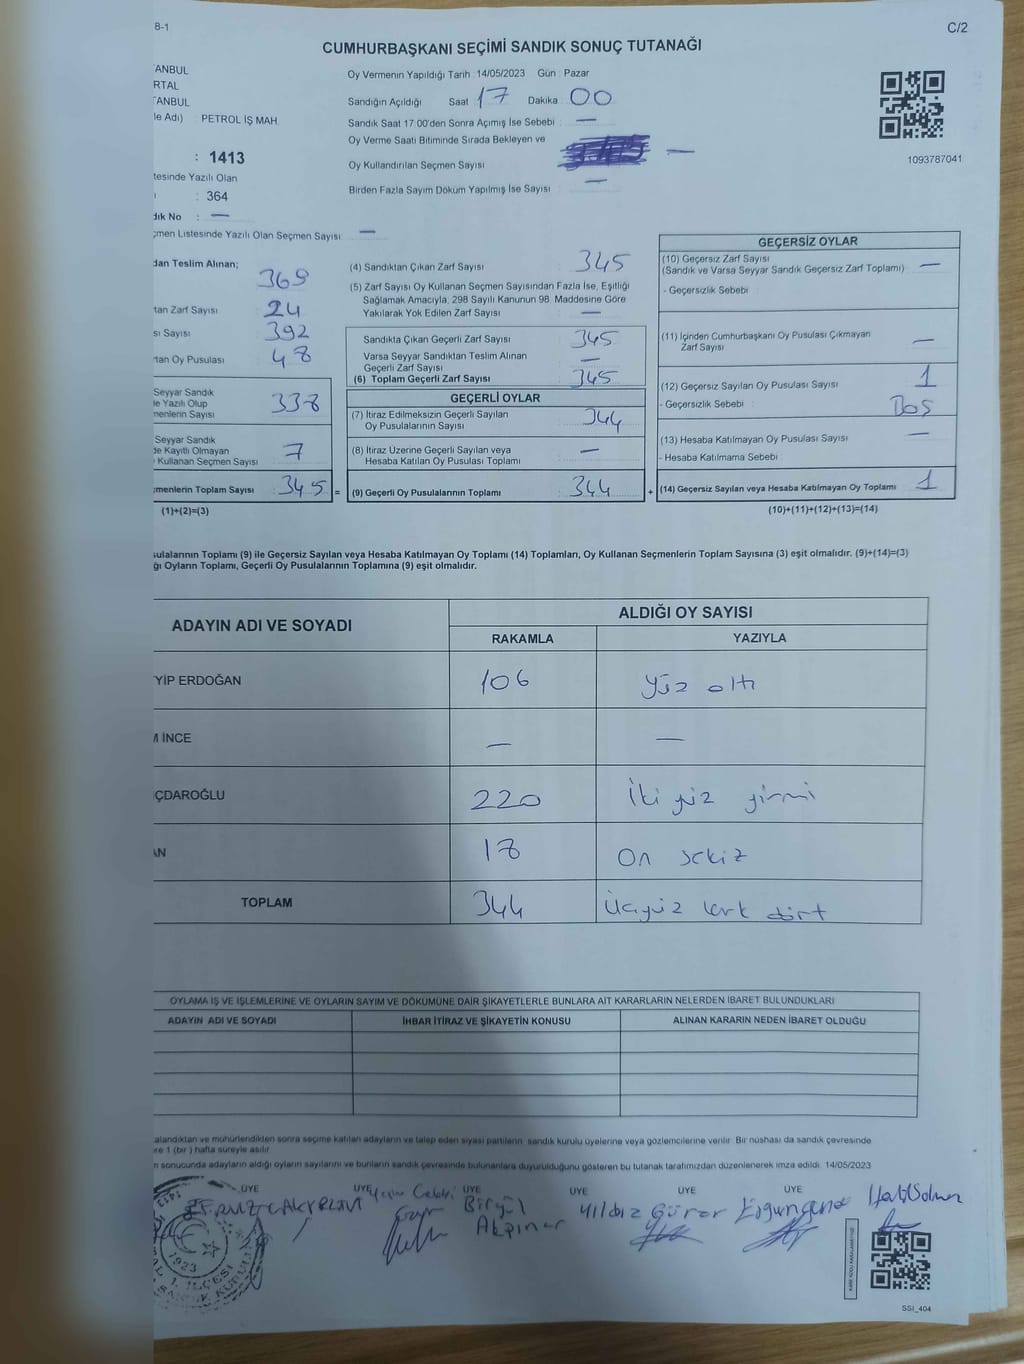 8-1
C/2
CUMHURBAŞKANI SEÇİMİ SANDIK SONUÇ TUTANAĞI
ANBUL
RTAL
ANBUL
le Adı) PETROL İŞ MAH
: 1413
tesinde Yazılı Olan
: 364
dık No : —
çmen Listesinde Yazılı Olan Seçmen Sayısı —
Oy Vermenin Yapıldığı Tarih 14/05/2023 Gün Pazar
Sandığın Açıldığı Saat 17 Dakika 00
Sandık Saat 17 00'den Sonra Açımış İse Sebebi : —
Oy Verme Saati Bitiminde Sırada Bekleyen ve
Oy Kullandırılan Seçmen Sayısı —
Birden Fazla Sayım Döküm Yapılmış İse Sayısı : —
1093787041
dan Teslim Alınan;
369
tan Zarf Sayısı 24
sı Sayısı 392
tan Oy Pusulası 48
Seyyar Sandık
le Yazılı Olup
menlerin Sayısı 338
Seyyar Sandık
de Kayıtlı Olmayan
Kullanan Seçmen Sayısı 7
menlerin Toplam Sayısı 345 =
(1)+(2)=(3)
(4) Sandıktan Çıkan Zarf Sayısı 345
(5) Zarf Sayısı Oy Kullanan Seçmen Sayısından Fazla İse, Eşitliği
Sağlamak Amacıyla, 298 Sayılı Kanunun 98. Maddesine Göre
Yakılarak Yok Edilen Zarf Sayısı —
Sandıkta Çıkan Geçerli Zarf Sayısı 345
Varsa Seyyar Sandıktan Teslim Alınan
Geçerli Zarf Sayısı —
(6) Toplam Geçerli Zarf Sayısı 345
GEÇERLİ OYLAR
(7) İtiraz Edilmeksizin Geçerli Sayılan
Oy Pusulalarının Sayısı 344
(8) İtiraz Üzerine Geçerli Sayılan veya
Hesaba Katılan Oy Pusulası Toplamı —
(9) Geçerli Oy Pusulalarının Toplamı 344 +
GEÇERSİZ OYLAR
(10) Geçersiz Zarf Sayısı
(Sandık ve Varsa Seyyar Sandık Geçersiz Zarf Toplamı) —
- Geçersizlik Sebebi
(11) İçinden Cumhurbaşkanı Oy Pusulası Çıkmayan
Zarf Sayısı —
(12) Geçersiz Sayılan Oy Pusulası Sayısı 1
- Geçersizlik Sebebi Boş
(13) Hesaba Katılmayan Oy Pusulası Sayısı —
- Hesaba Katılmama Sebebi
(14) Geçersiz Sayılan veya Hesaba Katılmayan Oy Toplamı 1
(10)+(11)+(12)+(13)=(14)
sulalarının Toplamı (9) ile Geçersiz Sayılan veya Hesaba Katılmayan Oy Toplamı (14) Toplamları, Oy Kullanan Seçmenlerin Toplam Sayısına (3) eşit olmalıdır. (9)+(14)=(3)
ğı Oyların Toplamı, Geçerli Oy Pusulalarının Toplamına (9) eşit olmalıdır.
ADAYIN ADI VE SOYADI
ALDIĞI OY SAYISI
RAKAMLA YAZIYLA
YİP ERDOĞAN 106 yüz altı
M İNCE — —
ÇDAROĞLU 220 İki yüz yirmi
AN 18 On sekiz
TOPLAM 344 Üçyüz kırk dört
OYLAMA İŞ VE İŞLEMLERİNE VE OYLARIN SAYIM VE DÖKÜMÜNE DAİR ŞİKAYETLERLE BUNLARA AİT KARARLARIN NELERDEN İBARET BULUNDUKLARI
ADAYIN ADI VE SOYADI İHBAR İTİRAZ VE ŞİKAYETİN KONUSU ALINAN KARARIN NEDEN İBARET OLDUĞU
alandıktan ve mühürlendikten sonra seçime katılan adayların ve talep eden siyasi partilerin sandık kurulu üyelerine veya gözlemcilerine verilir. Bir nüshası da sandık çevresinde
re 1 (bir) hafta süreyle asılır
n sonucunda adayların aldığı oyların sayılarını ve bunların sandık çevresinde bulunanlara duyurulduğunu gösteren bu tutanak tarafımızdan düzenlenerek imza edildi. 14/05/2023
ÜYE ÜYE ÜYE ÜYE ÜYE ÜYE
Birgül
Akpınar
Yıldız Gürer
1413
1923
1. İLÇESİ
SANDIK KURULU
SSI_404